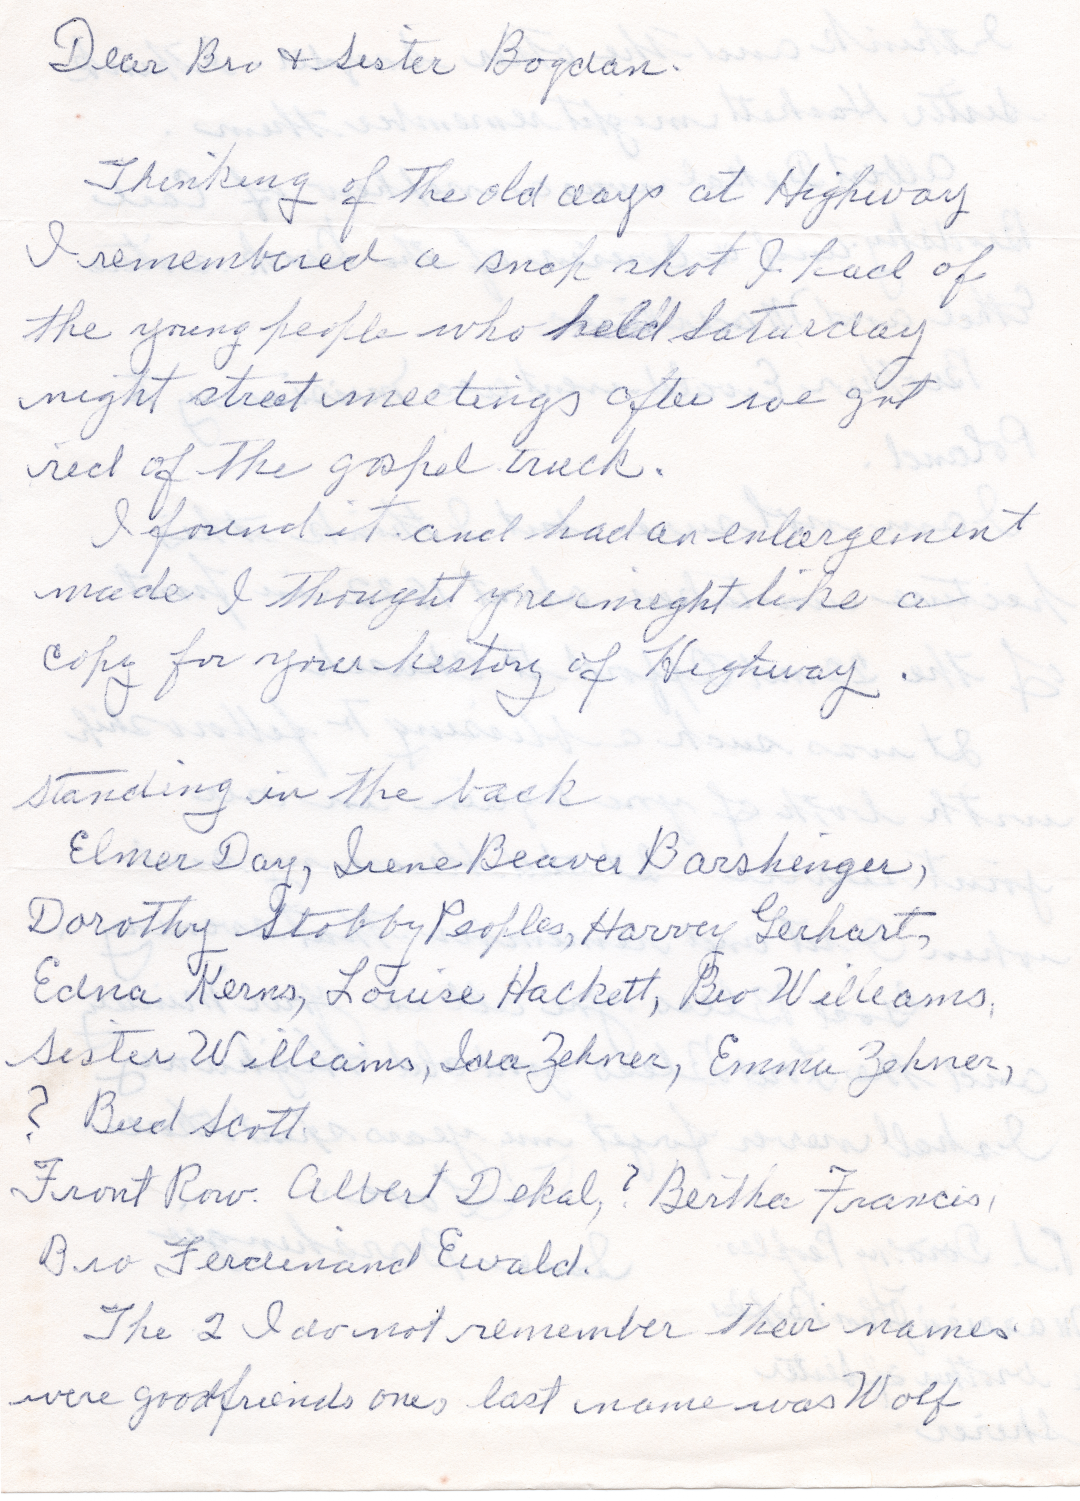 Dear Bro & Sister Bogdan.
Thinking of the old days at Highway
I remembered a snap shot I had of
the young people who held Saturday
night street meetings after we got
rid of the gospel truck.
I found it and had an enlargement
made I thought you might like a
copy for your history of Highway.
standing in the back
Elmer Day, Irene Beaver Barshinger,
Dorothy Stobby Peoples, Harvey Gerhart,
Edna Kerns, Louise Hackett, Bro Williams,
Sister Williams, Iva Zehner, Emma Zehner,
? Bud Scott.
Front Row. Albert Dekal, ? Bertha Francis,
Bro Ferdinand Ewald.
The 2 I do not remember their names
were good friends ones last name was Wolf